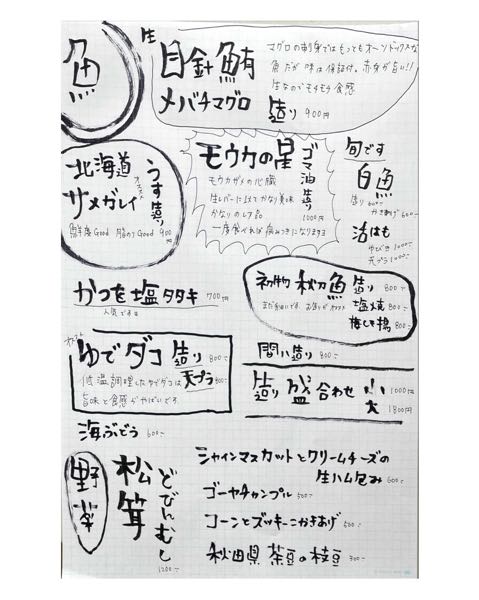 魚
生
目針鮪
メバチマグロ
マグロの刺身ではもっともオーソドックスな
魚だが味は保証付。赤身が旨い!!
生なのでモチモチ食感
造り 900円
北海道
サメガレイ
うす造り
オススメ
鮮度Good 脂のりGood 900円
モウカの星
ゴマ油造り
1000円
モウカザメの心臓
生レバーに似てかなり美味
かなりのレア品
一度食べれば病みつきになりますヨ
旬です
白魚
造り 600-
かきあげ 600-
活はも
ゆびき 1000-
天プラ 1000-
かつを塩タタキ 700円
人気です
初物 秋刀魚
造り 800-
塩焼 800-
梅しそ揚 800-
ゆでダコ
造り 800-
天プラ 800-
低温調理したゆでダコは
旨味と食感がやばいです
間八造り 800-
造り盛合わせ
小 1000円
大 1800円
海ぶどう 600-
野菜
松茸
どびんむし
1200-
シャインマスカットとクリームチーズの
生ハム包み 600-
ゴーヤチャンプル 500-
コーンとズッキーニかきあげ 500-
秋田県 茶豆の枝豆 300-